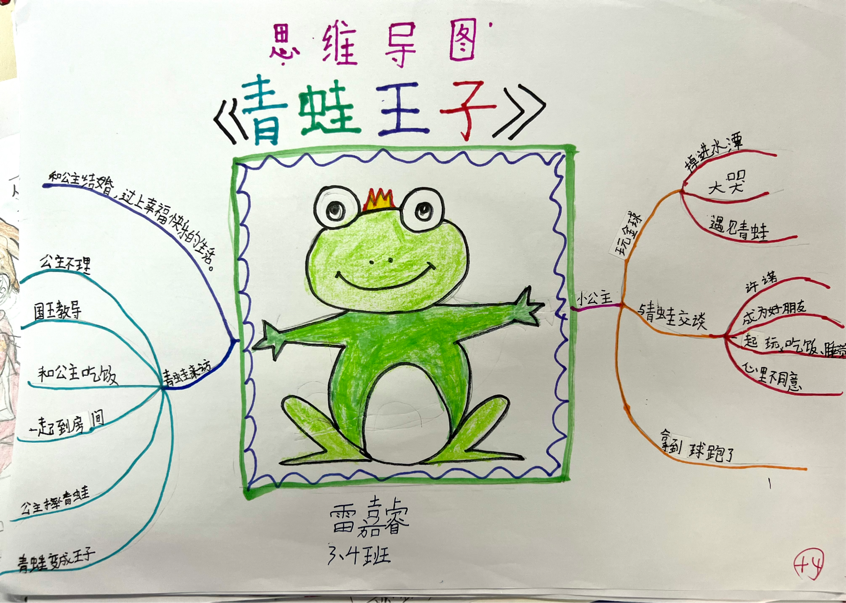 思维导图
《青蛙王子》
和公主结婚,过上幸福快乐的生活。
公主不理
国王教导
和公主吃饭
一起到房间
公主摔青蛙
青蛙变成王子
青蛙来访
小公主
玩金球
掉进水潭
大哭
遇见青蛙
与青蛙交谈
许诺
成为好朋友
起玩,吃饭、睡觉
心里不同意
拿到球跑了
雷嘉睿
3、4班
+4